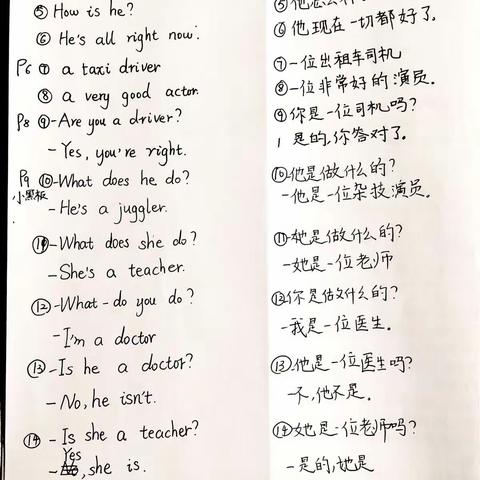 ⑤ How is he?
⑥ He's all right now.
P6 ⑦ a taxi driver
⑧ a very good actor.
P8 ⑨-Are you a driver?
-Yes, you're right.
P9 ⑩-What does he do?
小黑板
-He's a juggler.
⑪-What does she do?
-She's a teacher.
⑫-What-do you do?
-I'm a doctor
⑬-Is he a doctor?
-No, he isn't.
⑭-Is she a teacher?
Yes
-, she is.
⑥他现在一切都好了。
⑦一位出租车司机
⑧一位非常好的演员。
⑨你是一位司机吗?
是的,你答对了。
⑩他是做什么的?
-他是一位杂技演员。
⑪她是做什么的?
-她是一位老师
⑫你是做什么的?
-我是一位医生。
⑬他是一位医生吗?
-不,他不是。
⑭她是一位老师吗?
-是的,她是